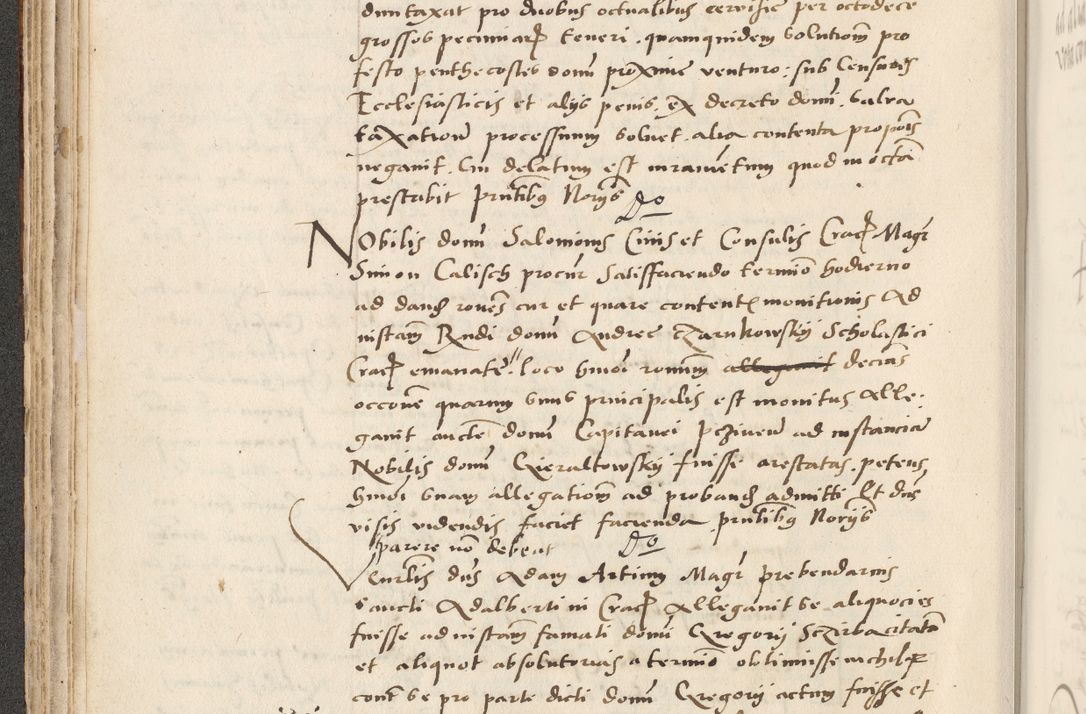 duntaxat pro duobus octualibus cervisie per octodece
grossos pecuniarum teneri. quamquidem solutiom pro
festo penthecostes dom proxime venturo: sub Censuris
Ecclesiasticis et alijs penis. ex decreto domi. salva
taxatione processuum solvet. alia contenta propois
negavit. Cui delatum est iuramentum quod in octa
prestabit pntibus Norijs
Do
Nobilis domi Salomonis Civis et Consulis Crac Magr
Simon Calisch procur Satisfaciendo termino hodierno
ad dand roneS cur et quare content monitionis Ad
instam Rndi domi Andree Czarnkowskij Scholastici
Crac emanate. loco hmoi ronum allegavit decias
occone quarum unus principalis est monitus Alle-
gavit aucte domi Capitanei ad instancia
Nobilis domi Gieraltowskij fuisse arestatas. petens
hmoi suam allegationem ad proband admitti Et dns
visis videndis faciet facienda pntibus Norijs
parere non debeat
Do
dns Adam Artium Magr prebendarius
sancti Adalberti in Crac Allegavit se aliquocies
fuisse ad instam famati domi Gregorij citata
et aliquot absolutorias a termino obtinuisse nichil
cont se pro parte dicti domi Gregorij actum fuisse et